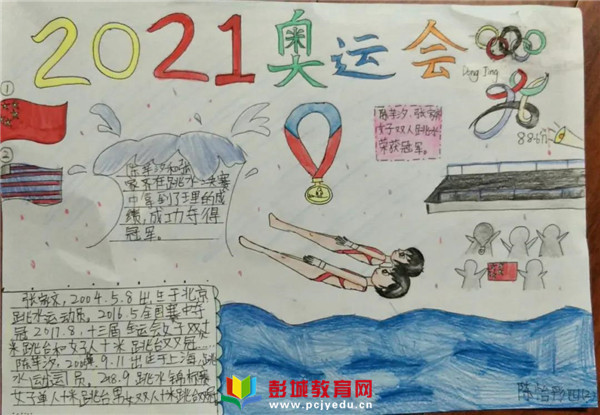 2021奥运会
①
②
Dong Jing
陈芋汐、张家齐
女子双人跳水
荣获冠军。
陈芋汐和张
家齐在跳水决赛
中拿到了
绩,成功夺得
冠军。
张家齐,2004.5.8出生于北京
跳水运动员。2016.5全国赛中夺
冠 2017.8.十三届全运会女子双人
米跳台和女子人十米 跳台双冠
陈芋汐,2005.9.11出生于上海,跳
水运动员,2018.9 跳水锦标赛
女子单人十米跳台
陈怡彤
彭城教育网
www.pcjyedu.com